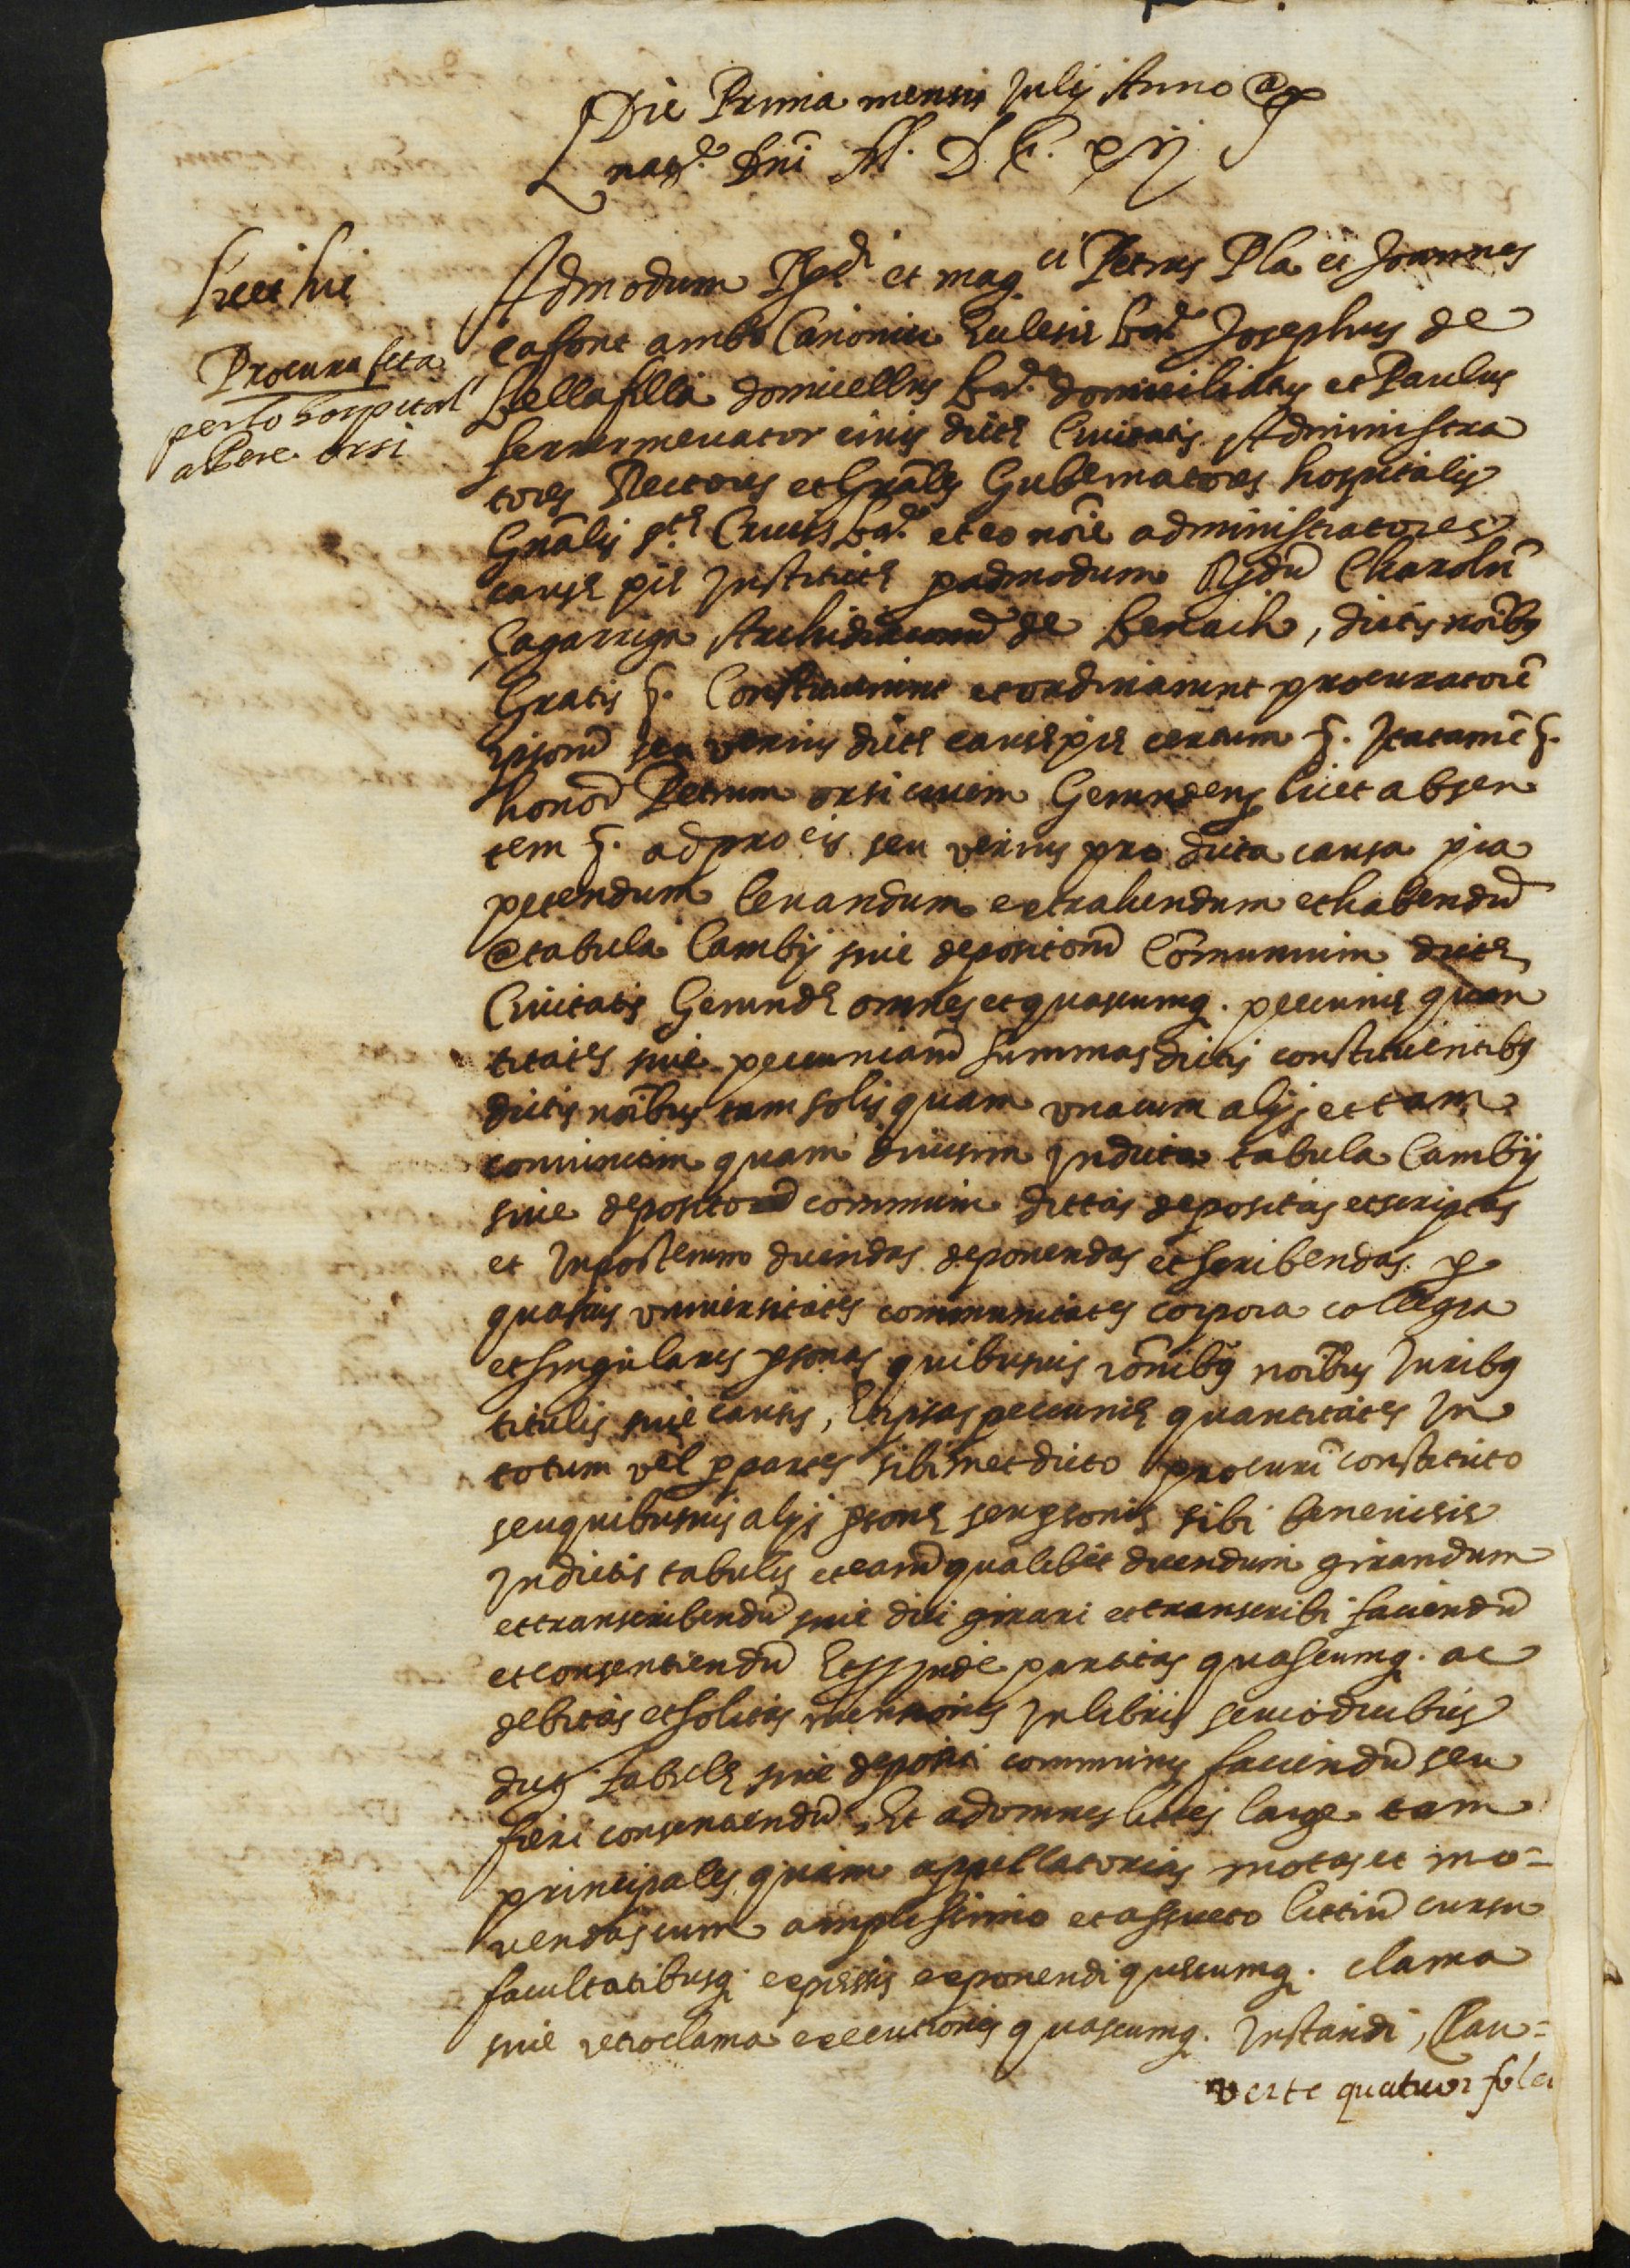 Die Prima mensis Julij Anno @
nat.e Dni M. D. C. xij
fuit hic
Procura feta
per lo hospital
a Pere orsi
Admodum Rndi et mag.ci Petrus Pla et Joannes
Cafont ambo Canonici Ecclesie Bar.e Josephus de
Bellafilla domicellus Bar.e domiciliatus et Paulus
serrermenator civis dicte Civitatis Administra
tores Rectores et Gnales Gubernatores hospitalis
Gnalis s.te Crucis Bar.e et eo noie administratores
cause pie Institute p admodum Rdu Charolu
Çagarriga Archidiaconu de Benach, dictis noibus
Gratis &. Constituerunt et ordinarunt procuratore
ipsoru seu verius dicte cause pie certum &. Ita tame &.
honor Petrum orsi civem Gerunden licet absen
tem &. ad pro eis seu verius pro dicta causa pia
petendum levandum extrahendum et habendu
@ tabula Cambij sive depositoru Comunium dicte
Civitatis Gerunde omnes et quascumq. pecunie quan
titates sive pecuniaru summas dictis constituentibus
dictis noibus tam solis quam unacum alijs et tam
coniunctim quam divisim In dicta tabula Cambij
sive depositoru communium dictas depositas et scriptas
et Inposterum dicendas deponendas et scribendas p
quasvis universitates communitates corpora collegia
et singulares psonas quibusvis ronibus noibus Juribus
titulis sive causis, Et ipsas pecunie quantitates In
totum vel p partes sibimet dicto procuri constituto
seu quibusvis alijs psone seu psonis sibi benevisis
In dictis tabulis et earu qualibet dicendum girandum
et transcribendu sive dici girari et transcribi faciendu
et consentiendu Et inde partitas quascumq. ac
debitas et solitas mentiones In libris seu codicibus
dicte tabule sive depositi communis faciendu seu
fieri consentiendu, Et ad omnes lites large tam
principales quam appellatorias motas et mo-
vendas cum amplissimo et assueto littiu cursu
facultatibusq expressis exponendi quecumq. clama
sive retroclama executiones quascumq. Instandi, Cau=
verte quatuor folea